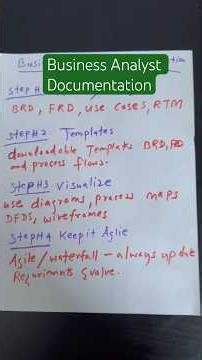 Business Analyst
Documentation
Busi
Step#1
BRD, FRD, use cases, RTM
Step#2 Templates
downloadable Templats BRD, FRD
and process flows.
Step#3 Visualize
use diagrams, process maps
DFDs, wireframes
Step#4 Keep it Aglie
Agile/waterfall - always update
Requirments Evolve.